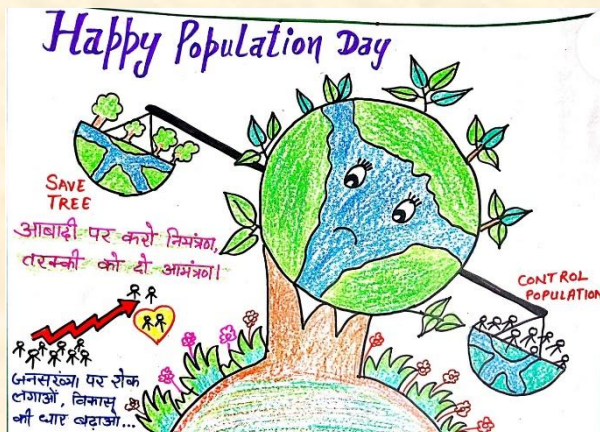 Happy Population Day
SAVE
TREE
आबादी पर करो नियंत्रण,
तरक्की को दो आमंत्रण।
CONTROL
POPULATION
जनसंख्या पर रोक
लगाओं, विकास
की धार बढ़ाओ...